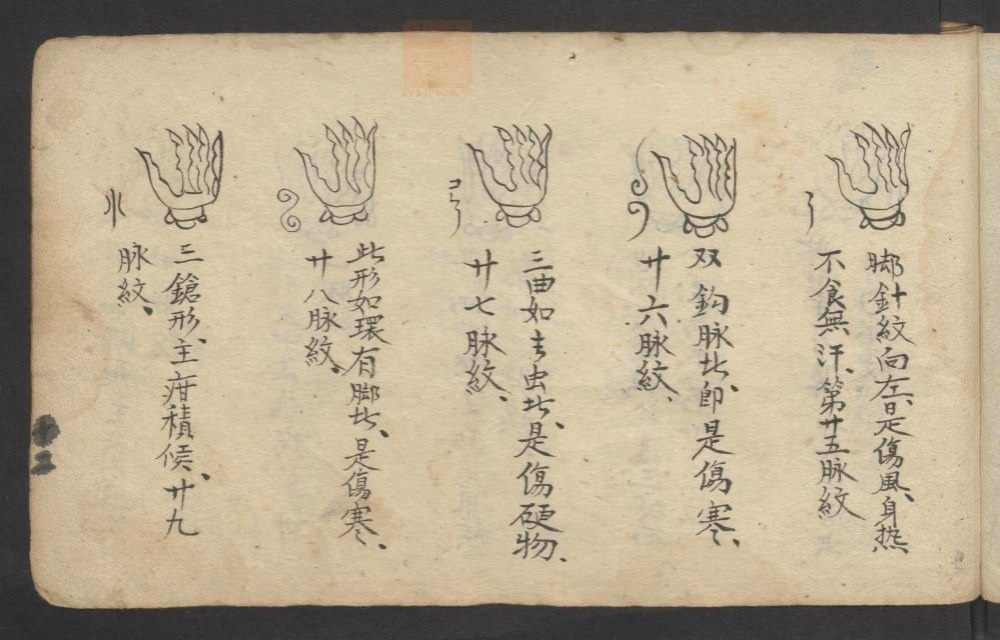 脚針紋向左、是傷風、身热
不食無汗、第廿五脉紋
双鈎脉此、即是傷寒、
廿六脉紋、
三曲如虫此、是傷硬物、
廿七脉紋、
此形如環有脚此、是傷寒、
廿八脉紋、
三鎗形、主疳積候、廿九
脉紋、